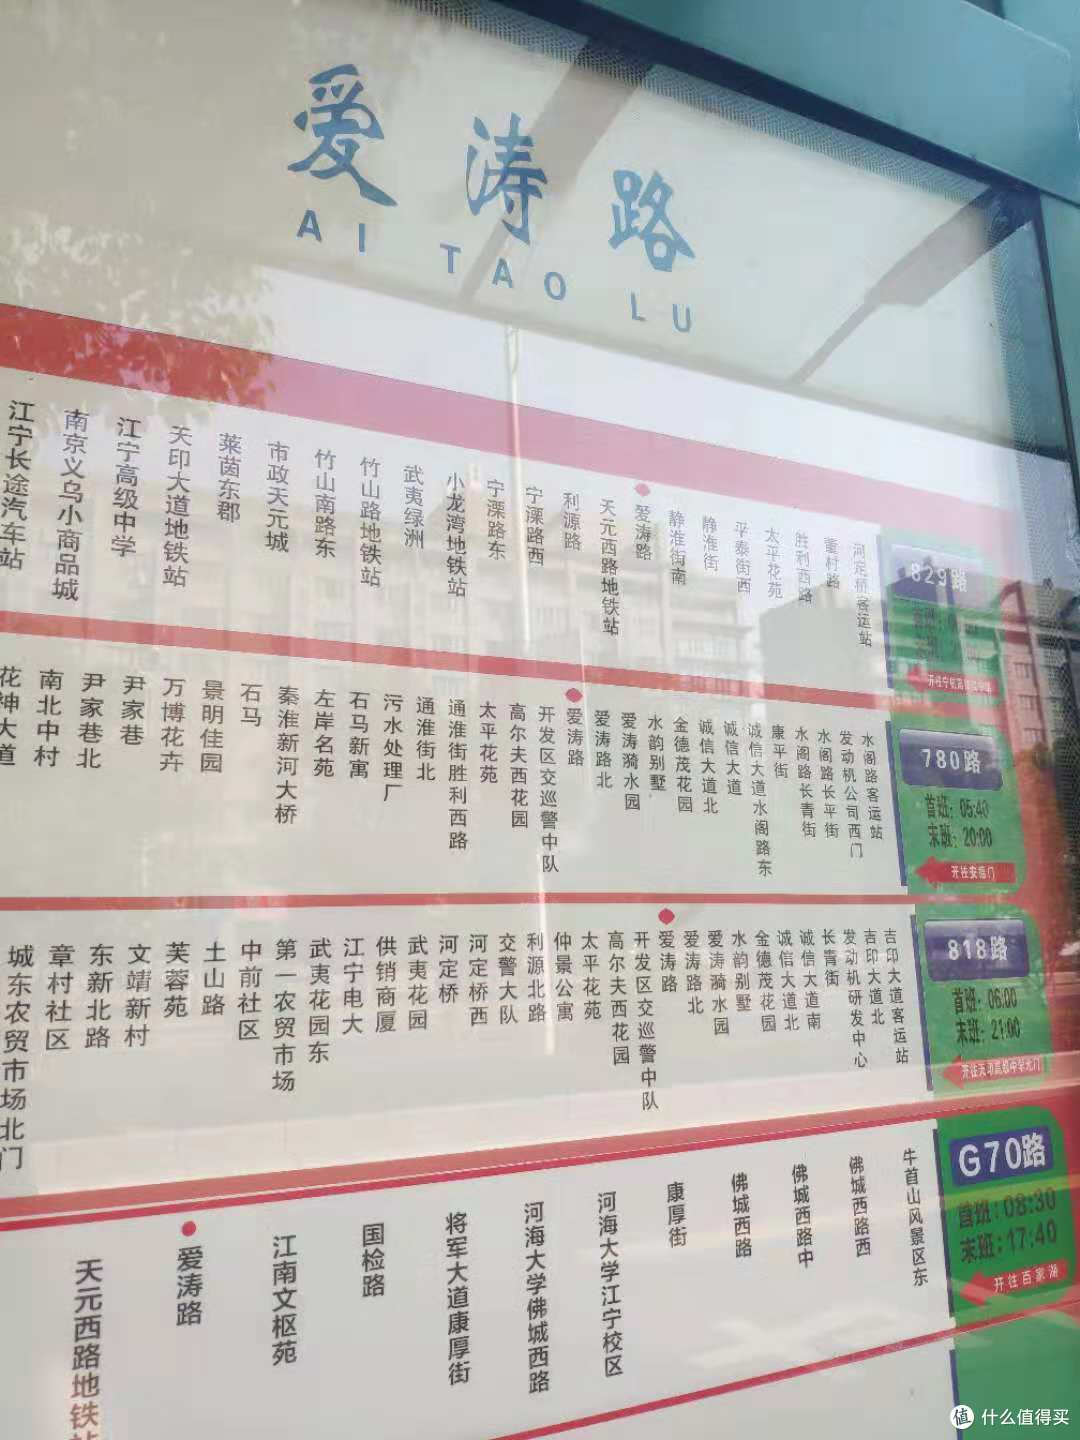 爱涛路
AI TAO LU
江宁长途汽车站
南京义乌小商品城
江宁高级中学
天印大道地铁站
莱茵东郡
市政天元城
竹山南路东
竹山路地铁站
武夷绿洲
小龙湾地铁站
宁溧路东
宁溧路西
利源路
天元西路地铁站
爱涛路
静淮街南
静淮街
平泰街西
太平花苑
胜利西路
董村路
河定桥客运站
829路
花神大道
南北中村
尹家巷北
尹家巷
万博花卉
景明佳园
石马
秦淮新河大桥
左岸名苑
石马新寓
污水处理厂
通淮街北
通淮街胜利西路
太平花苑
高尔夫西花园
开发区交巡警中队
爱涛路
爱涛路北
爱涛漪水园
水韵别墅
金德茂花园
诚信大道北
诚信大道
诚信大道水阁路东
康平街
水阁路长青街
水阁路长平街
发动机公司西门
水阁路客运站
780路
首班：05:40
末班：20:00
开往安德门
城东农贸市场北门
章村社区
东新北路
文靖新村
芙蓉苑
土山路
中前社区
第一农贸市场
武夷花园东
江宁电大
供销商厦
武夷花园
河定桥
河定桥西
交警大队
利源北路
仲景公寓
太平花苑
高尔夫西花园
开发区交巡警中队
爱涛路
爱涛路北
爱涛漪水园
水韵别墅
金德茂花园
诚信大道北
诚信大道南
长青街
发动机研发中心
吉印大道北
吉印大道客运站
818路
首班：06:00
末班：21:00
开往天印高级中学北门
天元西路地铁站
爱涛路
江南文枢苑
国检路
将军大道康厚街
河海大学佛城西路
河海大学江宁校区
康厚街
佛城西路
佛城西路中
佛城西路西
牛首山风景区东
G70路
首班：08:30
末班：17:40
开往百家湖
值 什么值得买